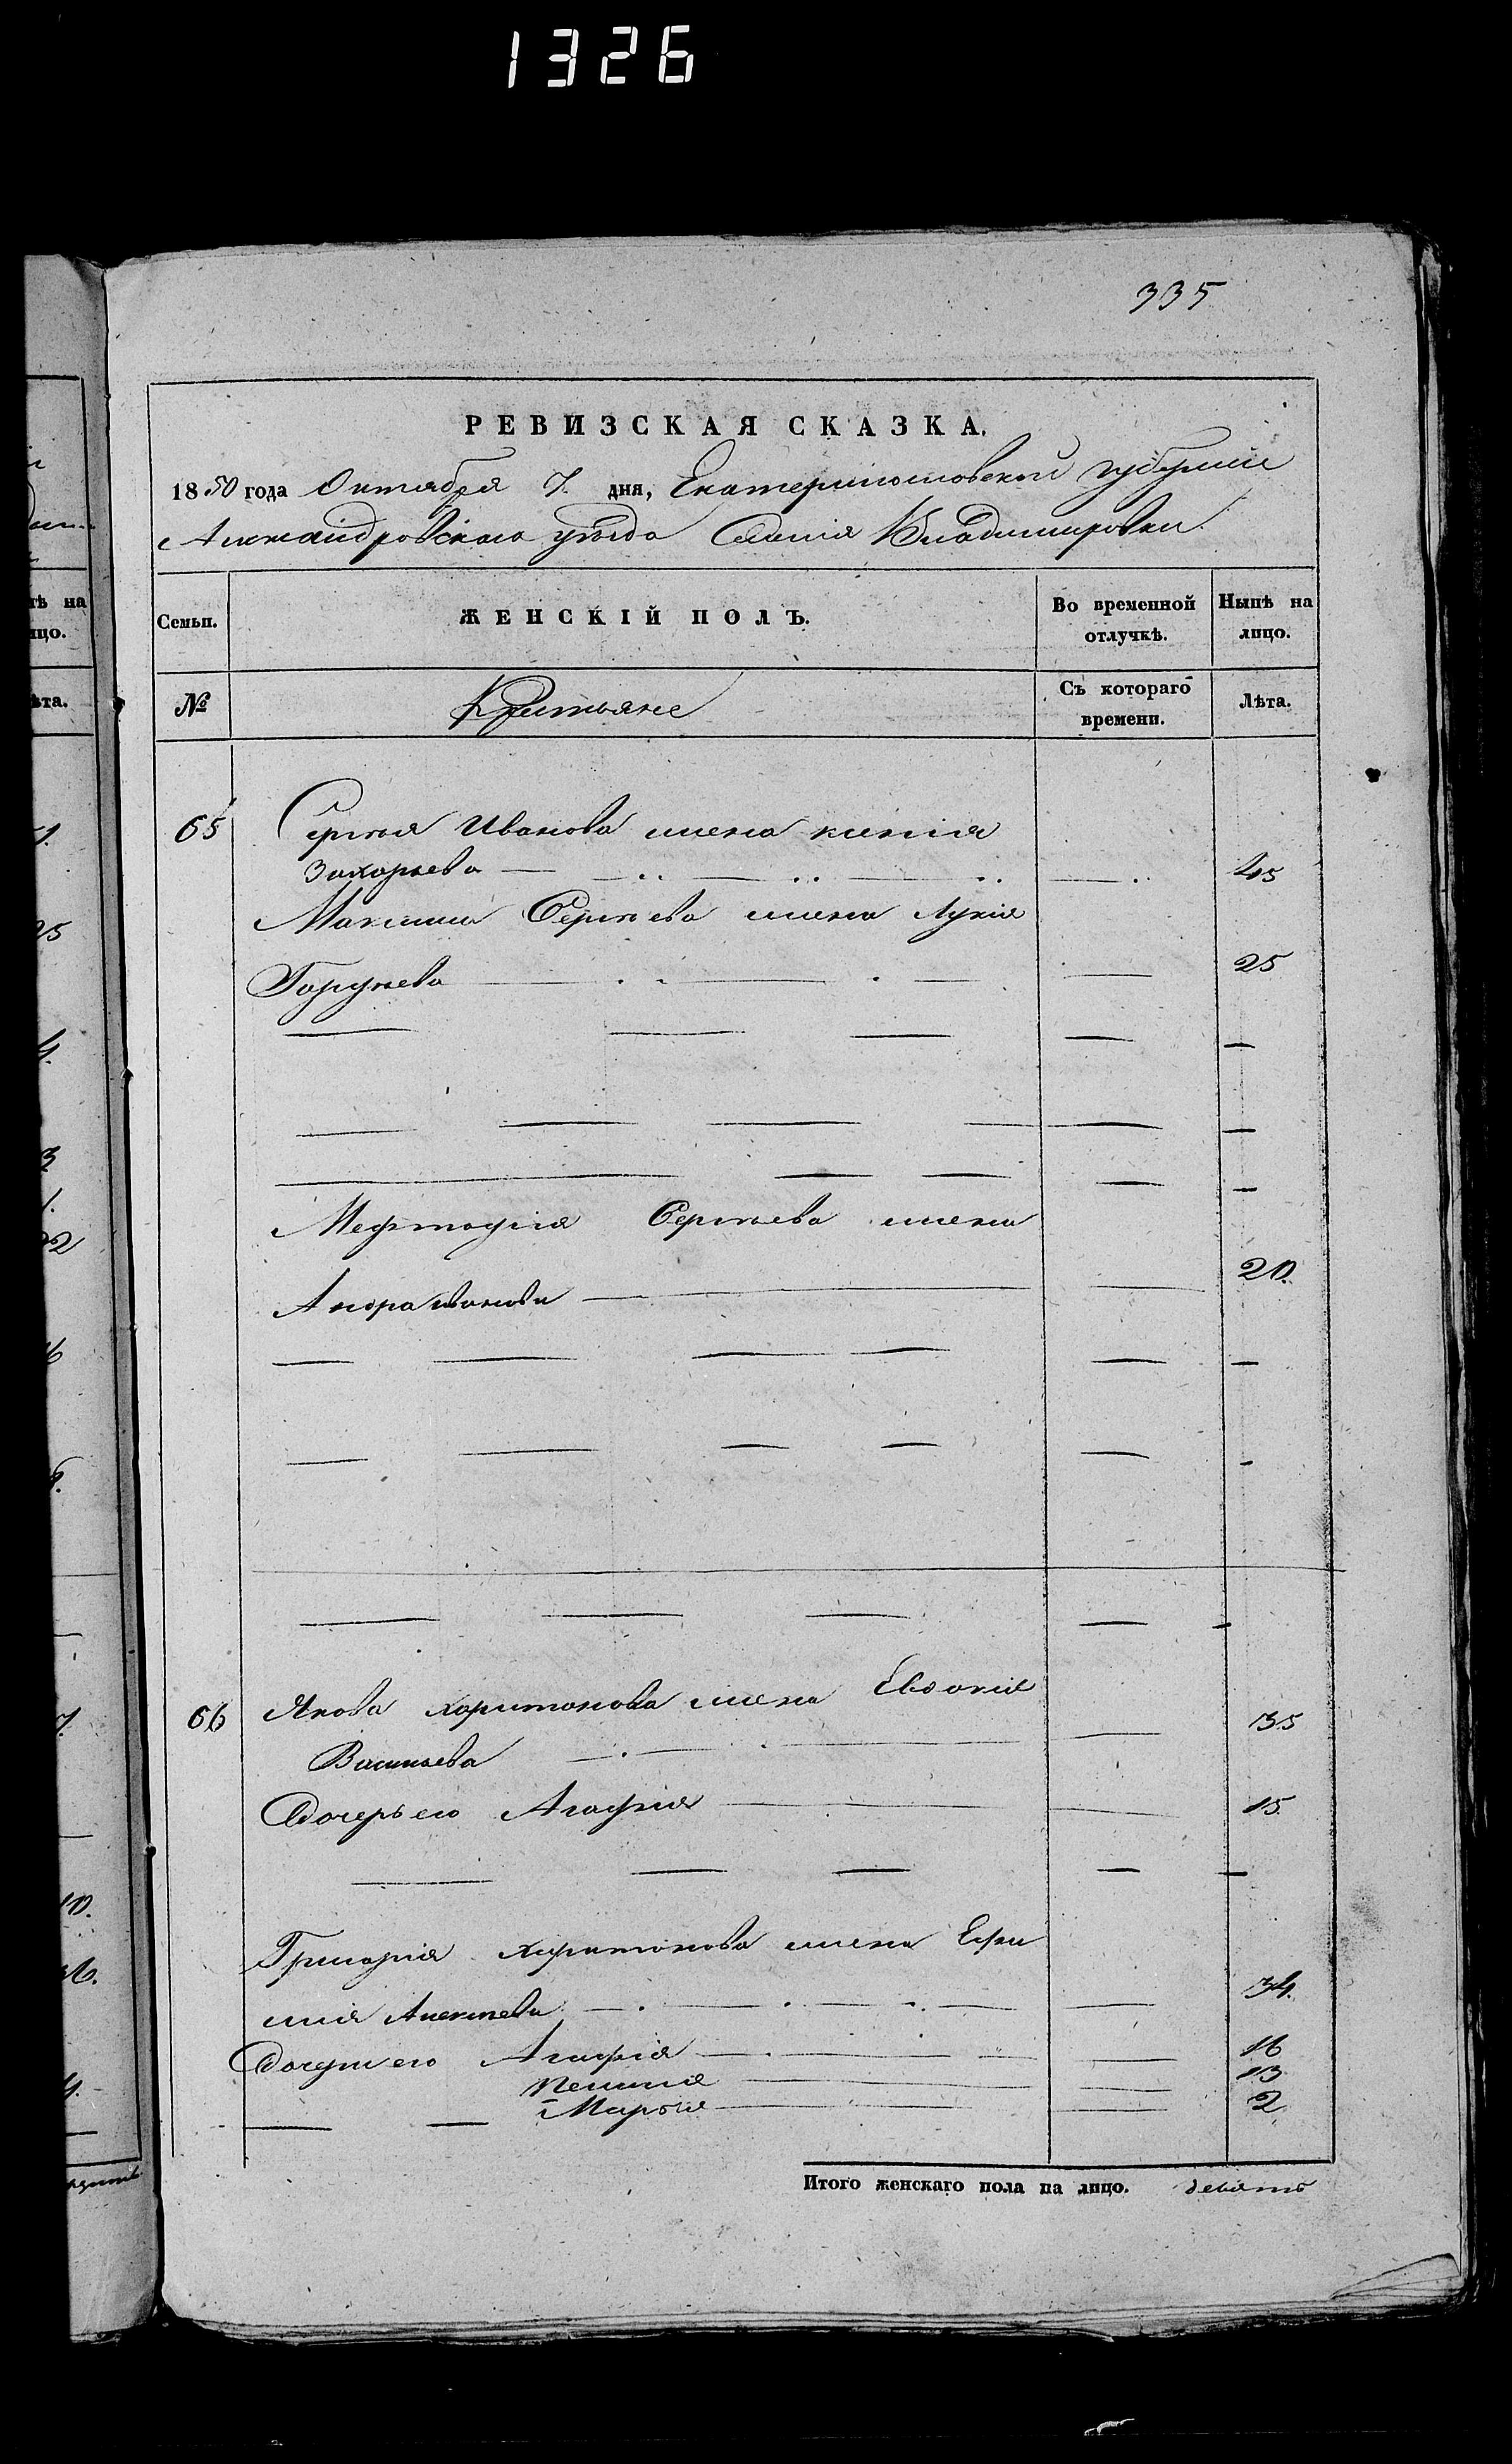 1326
335
РЕВИЗСКАЯ СКАЗКА.
1850 года Октября 7. дня, Екатеринославской губернии
Александровскаго уѣзда Селенія Владимировки.
Семьи.
ЖЕНСКІЙ ПОЛЪ.
Во временной отлучкѣ.
Нынѣ на лицо.
№
Крестьяне
Съ котораго времени.
Лѣта.
65 Сергѣя Иванова жена
Захарьева 45
Максима Сергѣева жена Лукія
25
Мефтодія Сергѣева жена
20.
66 Якова Харитонова жена Евдокія
Васильева 35
Дочерь его Агафія 15.
Григорія Харитонова жена Ефи
мія Алексѣева 34.
Дочери его Агафія 16
13
Марья 2
Итого женскаго пола на лицо. девять